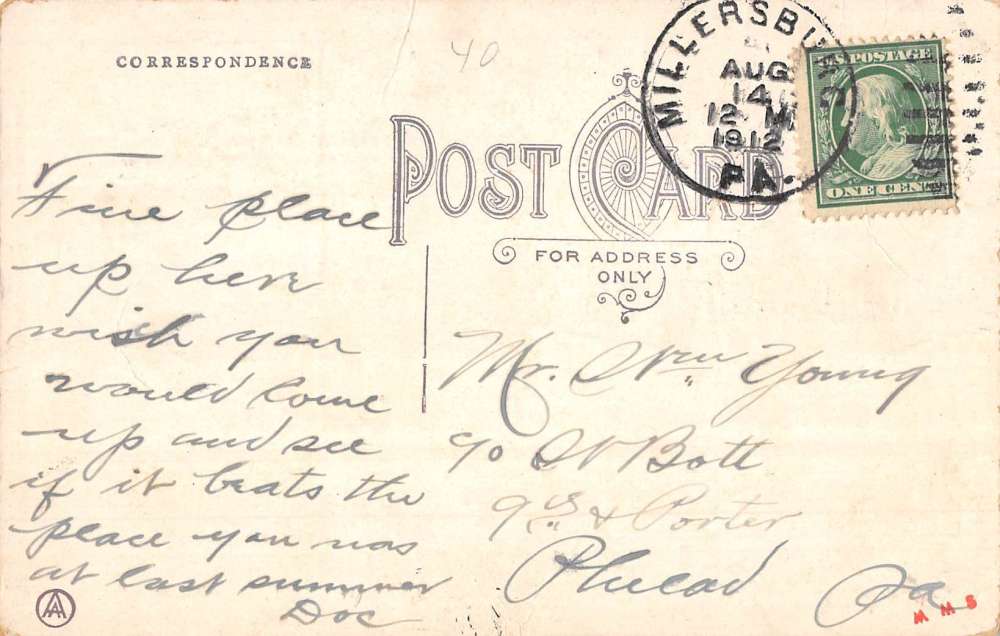 CORRESPONDENCE
40
MILLERSBURG
AUG
14
12 M
1912
PA.
POSTAGE
ONE CENT
POST CARD
FOR ADDRESS
ONLY
Fine place
up here
wish you
would come
up and see
if it beats the
place you was
at last summer
Doc
Mr. Wm Young
c/o W Bott
9th & Porter
Philad Pa
AA
MMS